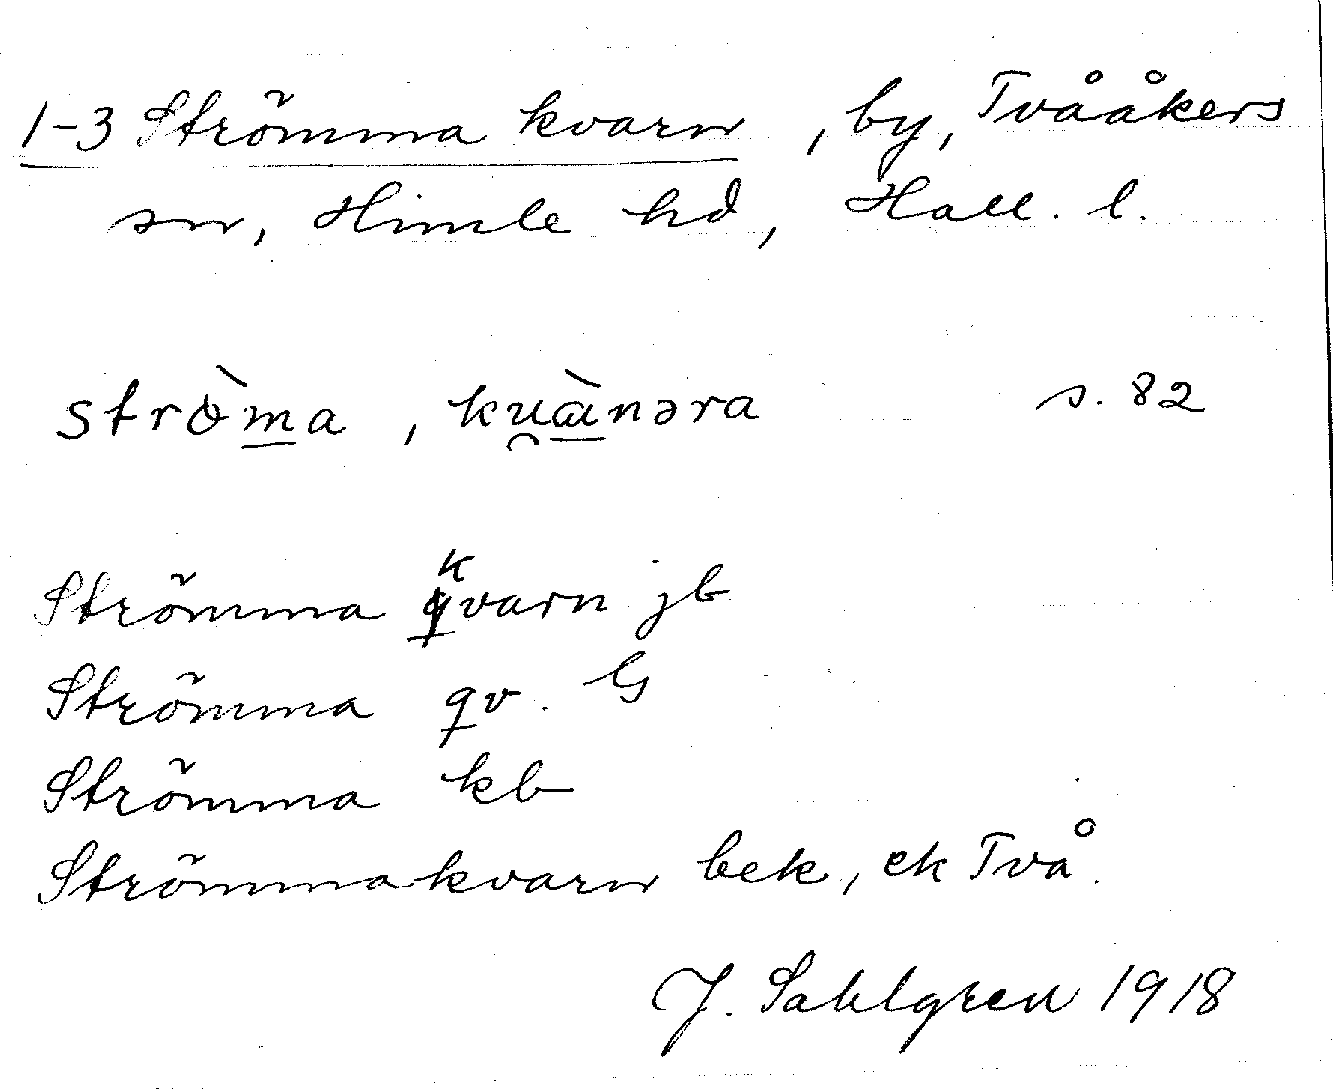 1-3 Strömma kvarn, by, Tvååkers
sn, Himle hd, Hall. l.
strò̈ma, ku̯ànəra s. 82
Strömma kvarn jb
Strömma qv. G
Strömma kb
Strömmakvarn bek, ek Två.
J. Sahlgren 1918